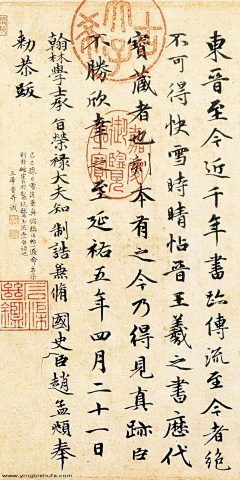 東晉至今近千年書跡傳流至今者絕
不可得快雪時晴帖晉王羲之書歷代
寶藏者也刻本有之今乃得見真跡臣
不勝欣幸之至延祐五年四月二十一日
翰林學士承旨榮祿大夫知制誥兼脩國史臣趙孟頫奉
勑恭跋
www.yingbishufa.com